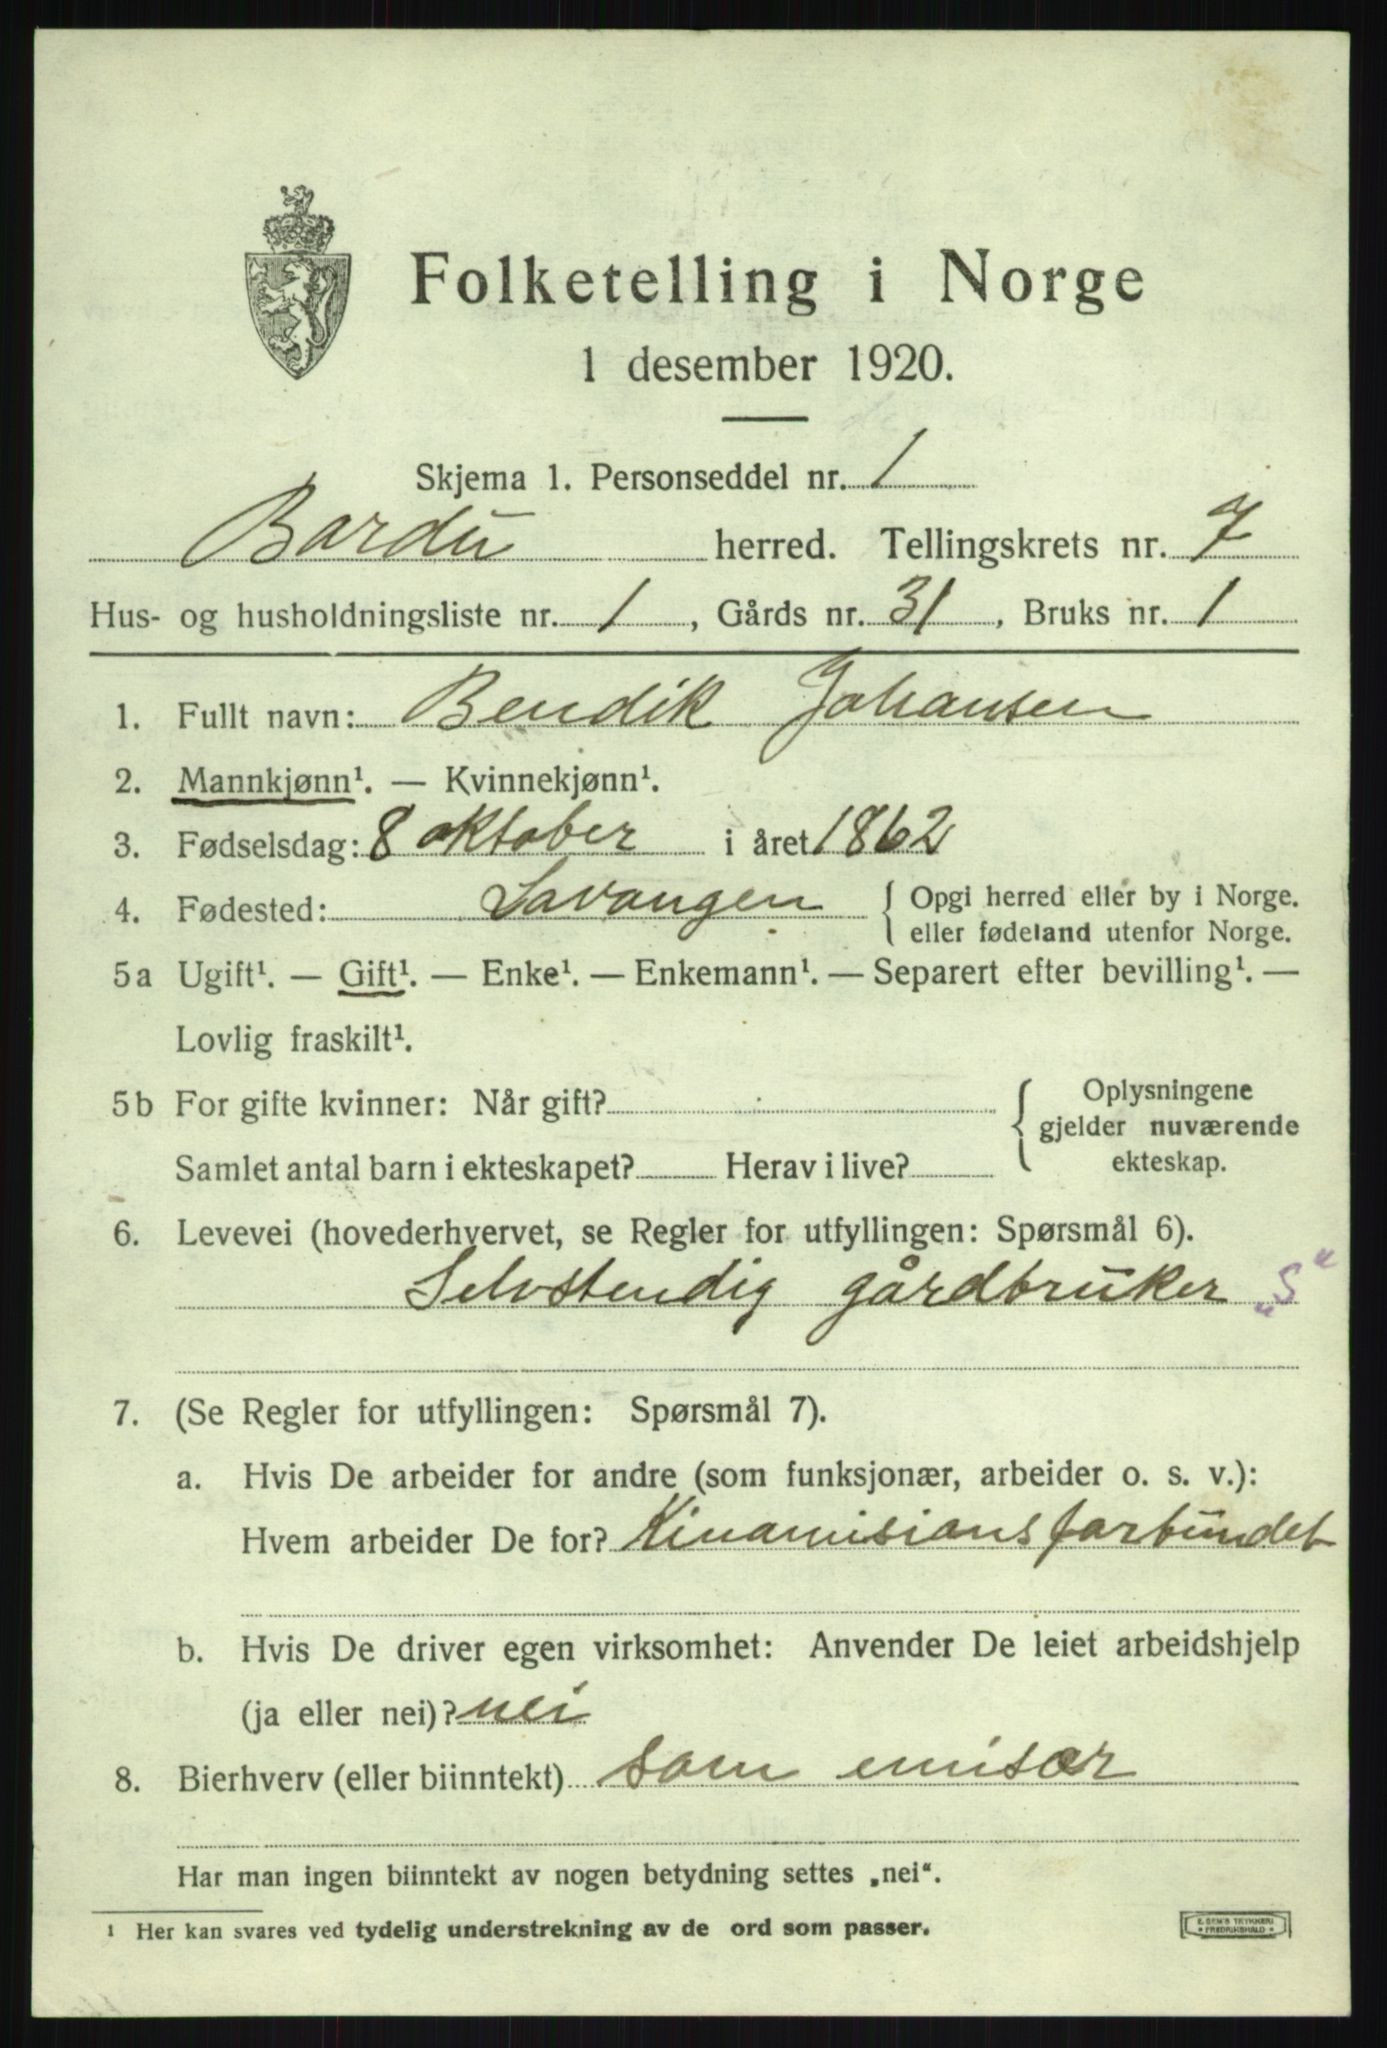 Folketelling i Norge
1 desember 1920.
Skjema 1. Personseddel nr. 1
Bardu herred. Tellingskrets nr. 7
Hus- og husholdningsliste nr. 1, Gårds nr. 31, Bruks nr. 1
1. Fullt navn: Bendik Johansen
2. Mannkjønn¹. — Kvinnekjønn¹.
3. Fødselsdag: 8 oktober i året 1862
4. Fødested: Lavangen { Opgi herred eller by i Norge.
eller fødeland utenfor Norge.
5a Ugift¹. — Gift¹. — Enke¹. — Enkemann¹. — Separert efter bevilling¹. —
Lovlig fraskilt¹.
5b For gifte kvinner: Når gift? { Oplysningene
gjelder nuværende
Samlet antal barn i ekteskapet? Herav i live? ekteskap.
6. Levevei (hovederhvervet, se Regler for utfyllingen: Spørsmål 6).
Selvstendig gårdbruker „S“
7. (Se Regler for utfyllingen: Spørsmål 7).
a. Hvis De arbeider for andre (som funksjonær, arbeider o. s. v.):
Hvem arbeider De for? Kinamisionsforbundet
b. Hvis De driver egen virksomhet: Anvender De leiet arbeidshjelp
(ja eller nei)? nei
8. Bierhverv (eller biinntekt) som emisær
Har man ingen biinntekt av nogen betydning settes „nei“.
¹ Her kan svares ved tydelig understrekning av de ord som passer.
E. SEM'S TRYKKERI
FREDRIKSHALD